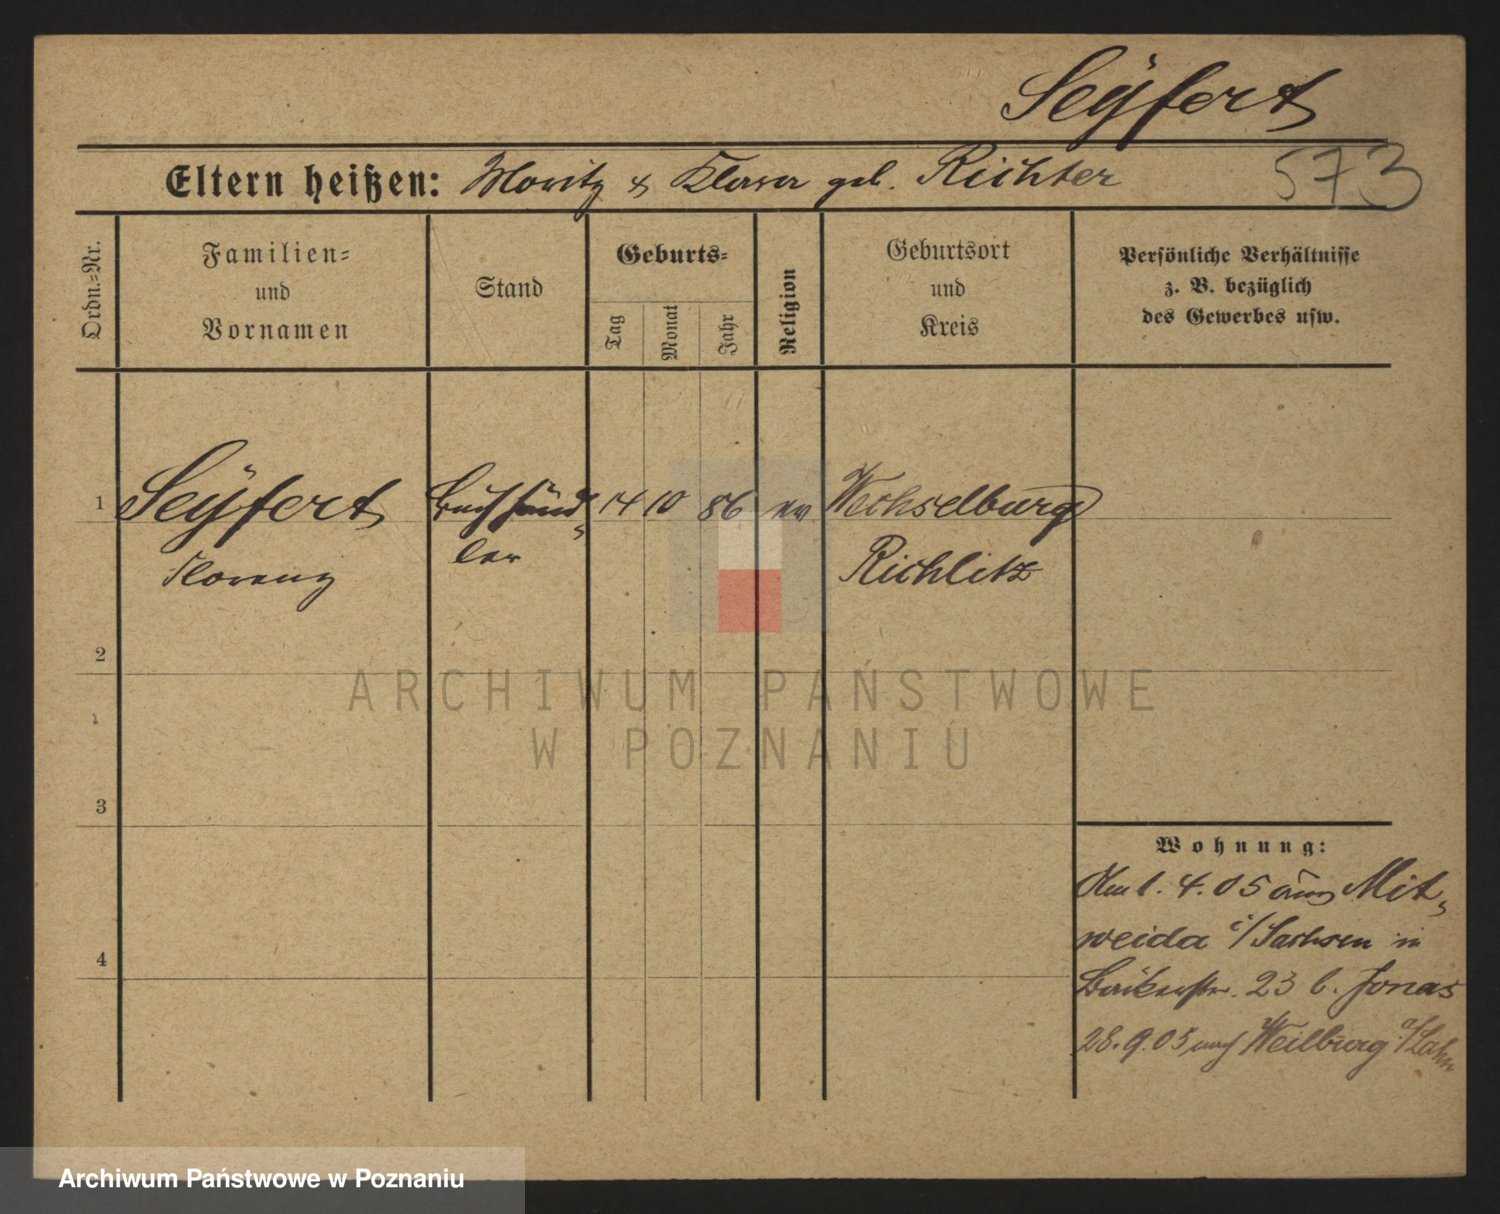 Seÿfert
573
Eltern heißen: Moritz & Klara geb. Richter
Ordn.=Nr.
Familien=
und
Vornamen
Stand
Geburts=
Tag
Monat
Jahr
Religion
Geburtsort
und
Kreis
Persönliche Verhältnisse
z. B. bezüglich
des Gewerbes usw.
1
Seÿfert
Florenz
Buchhänd=
ler
14 10 86 ev
Wechselburg
Richlitz
2
3
4
Wohnung:
Am 1. 4. 05 aus Mit=
weida i/Sachsen in
Bäckerstr. 23 b. Jonas
28. 9. 05 nach Weilburg a/Lahn
ARCHIWUM PAŃSTWOWE
W POZNANIU
Archiwum Państwowe w Poznaniu